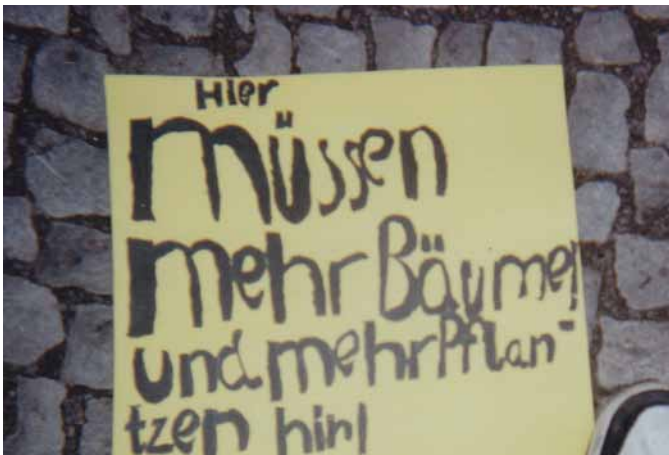 Hier
müssen
mehr Bäume!
und mehr Pflan-
tzen hin!